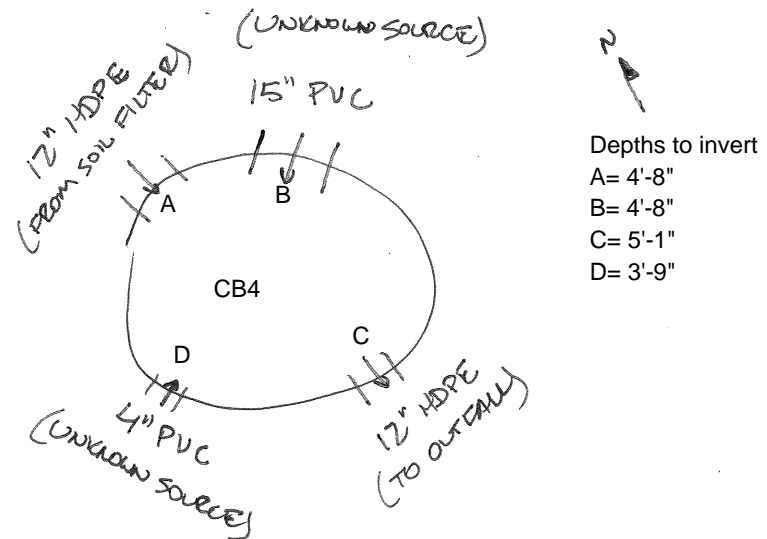 (UNKNOWN SOURCE)
N
12" HDPE
(FROM SOIL FILTER)
15" PVC
Depths to invert
A= 4'-8"
B= 4'-8"
C= 5'-1"
D= 3'-9"
A
B
CB4
C
D
4" PVC
(UNKNOWN SOURCE)
12" HDPE
(TO OUTFALL)